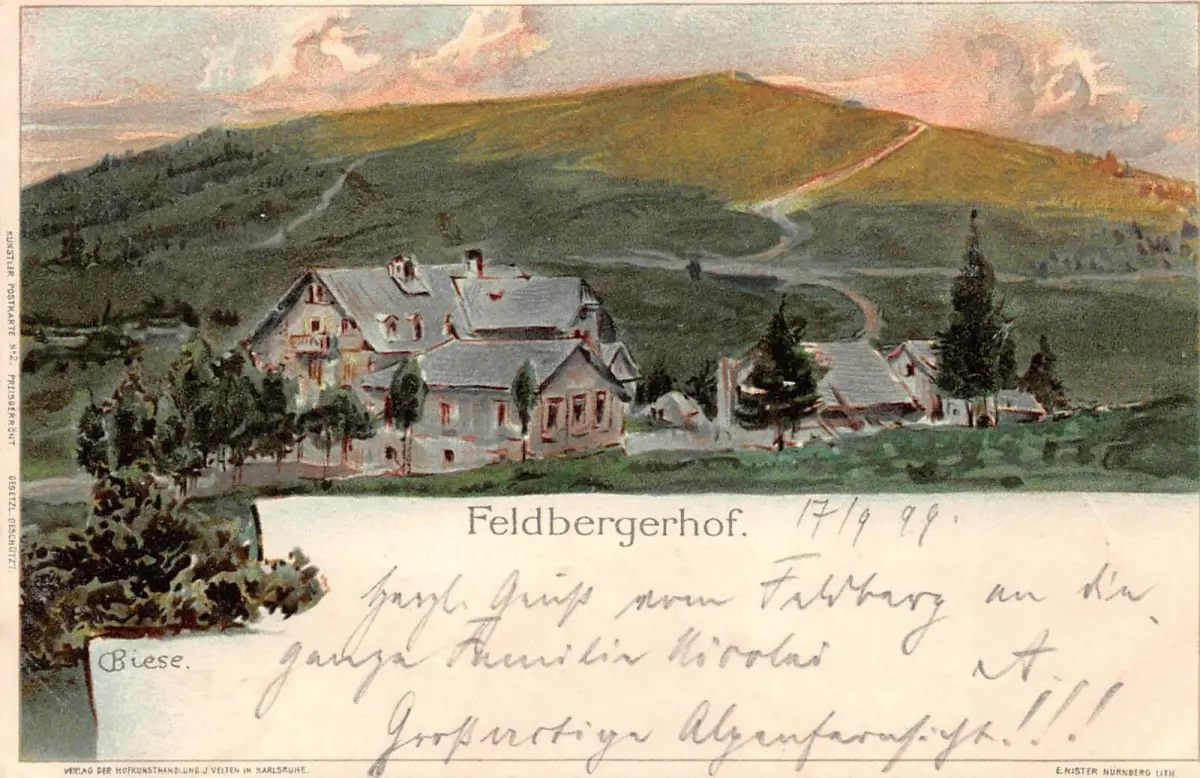 KÜNSTLER POSTKARTE No 2. PREISGEKRÖNT. GESETZL. GESCHÜTZT.
Feldbergerhof. 17/9 99.
Herzl. Gruß vom Feldberg an die
ganze Familie Nicolai
A.
Großartige Alpenfernsicht!!!
C Biese.
VERLAG DER HOFKUNSTHANDLUNG J. VELTEN IN KARLSRUHE.
E. NISTER NÜRNBERG LITH.